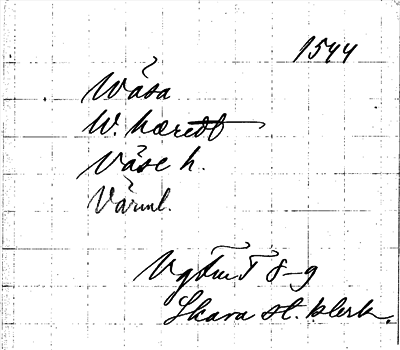 1544
Wåsa
W. hæredt
Väse h.
Värml.
8-9
Skara st. klerk.